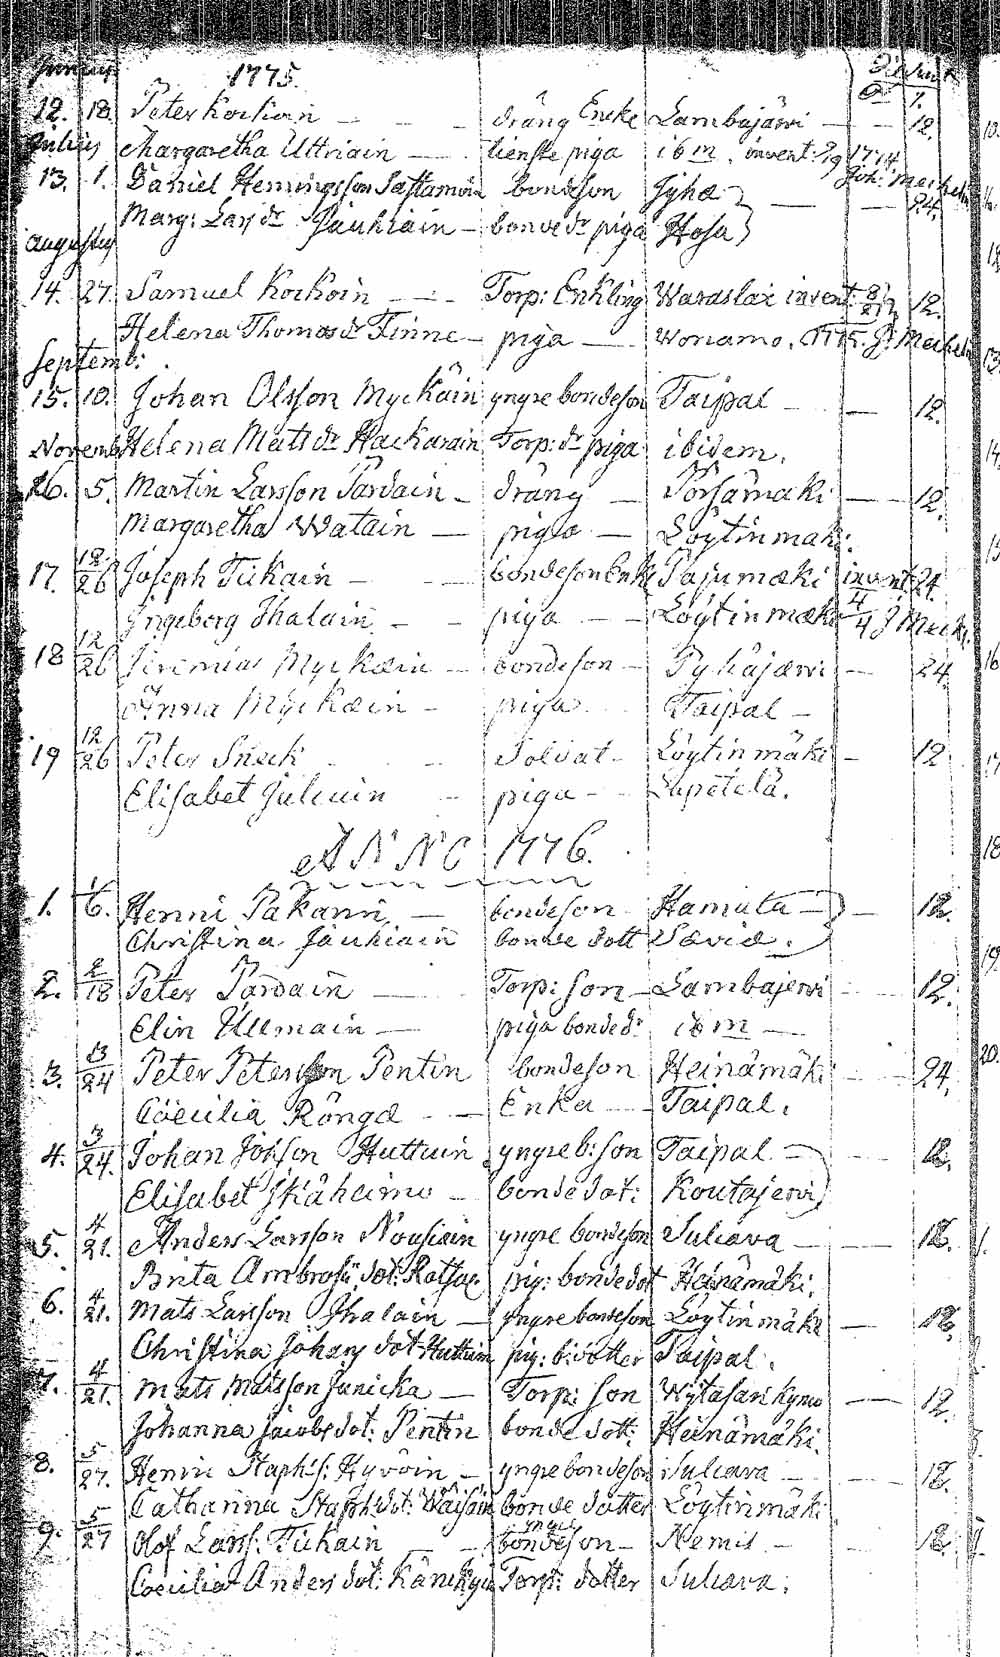 Junius 1775.
12. 18. Peter Korhoin dräng Encke Lambajärvi 12.
Julius Margaretha Uttriain tienste piga ibm. invent:
13. 1. Daniel Hemingsson Sattamoin bondeson Jyhæ 24.
Marg: Lars dr Jäuhiain bonde dr piga Hosa
augustus
14. 27. Samuel Korhoin Torp: Enkling Waraslax invent: 12.
Helena Thomas dr Finne piga Wonamo. 1775. J: Mechelin
Septemb:
15. 10. Johan Olsson Myckäin yngre bondeson Taipal 12.
Novemb Helena Matts dr Hackarain Torp: dr piga ibidem.
16. 5. Martin Larsson Pardain dräng Porsämäki 12.
Margaretha Watain piga Löytinmäki.
17. 12/26 Joseph Tiikain bondeson Enk Pajumæki invent: 24.
Ingeborg Ihalain piga Löytinmæki 4/4 J Mech.
18 12/26 Jeremias Myckæin bondeson Pyhäjærvi 24
Anna Myckæin piga Taipal
19 12/26 Peter Sneck Soldat Löytinmäki 12
Elisabet Julcuin piga Lepetelä.
ANNO 1776.
1. 1/6. Henric Pakarin bondeson Hamula 12.
Christina Jäuhiain bonde dott Sæviæ.
2. 2/18 Peter Pardain Torp: son Lambajervi 12.
Elin Ullmain piga bonde dr ibm
3. 3/24 Peter Petersson Pentin bondeson Heinämäki 24.
Cæcilia Röngæ Enka Taipal.
4. 3/24. Johan Johsson Huttuin yngre b: son Taipal 12.
Elisabet Ikäheimo bonde dot: Koutajervi
5. 4/21. Anders Larsson Nousiain yngre bondeson Sulcava 12.
Brita Ambrosii dot: Ratsæ pig: bonde dot Heinämäki.
6. 4/21. Mats Larsson Ihalain yngre bondeson Löytinmäki 12.
Christina Johans dot: Huttuin pig: b: dotter Taipal.
7. 4/21. Mats Matsson Junicka Torp: son 12.
Johanna Jacobs dot: Pentin bonde dott: Heinämäki.
8. 5/27. Henric Staphs: Hyvöin yngre bondeson Sulcava 12.
Catharina Staph: dot: Wäisäin bonde dotter Löytinmäki
9. 5/27 Olof Larss: Tiikain yngre bondeson Niemis 12.
Cæcilia Anders dot: Torp: dotter Sulcava.